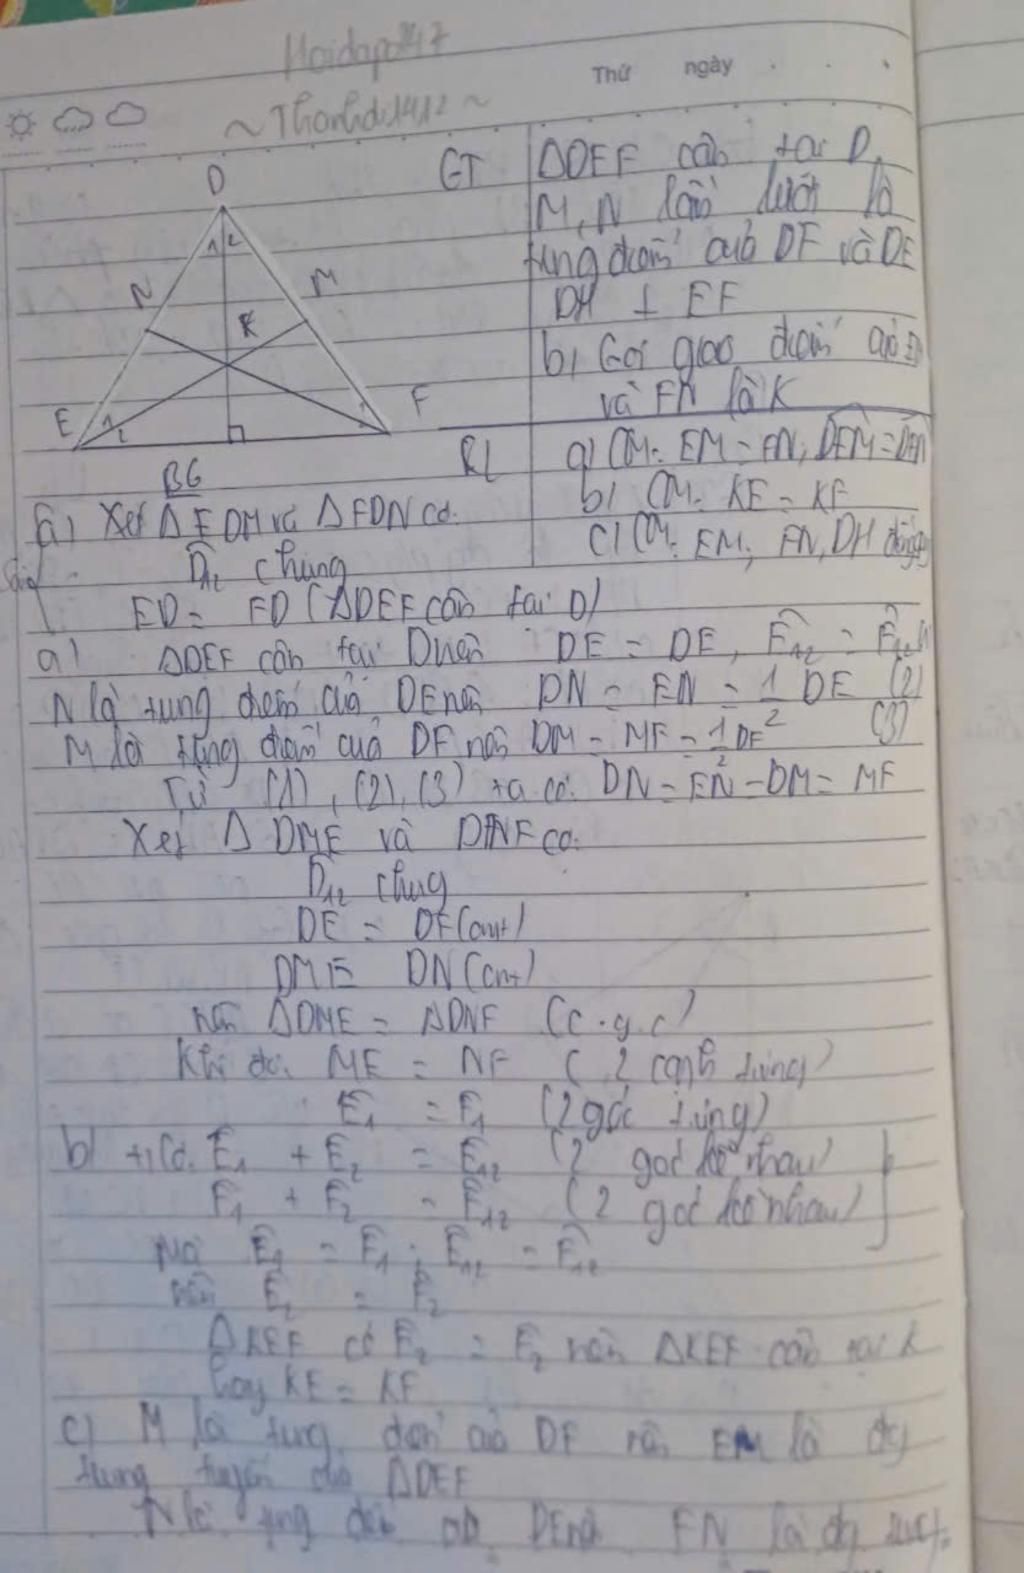 Hoidap247
Thứ ngày
~Thanhdi1412~
D
N
M
K
E
F
GT
ΔDEF cân tại D
M, N lần lượt là
trung điểm của DF và DE
DH ⊥ EF
b) Gọi giao điểm của
và FN là K
KL
a) CM: EM = FN,
b) CM: KE = KF
c) CM: EM, FN, DH
BG
a) Xét Δ EDM và Δ FDN có:
D̂₁₂ chung
ED = FD (ΔDEF cân tại D)
a) ΔDEF cân tại D nên DE = DF, Ê₁₂ = F̂₁₂
N là trung điểm của DE nên DN = EN = 1/2 DE (2)
M là trung điểm của DF nên DM = MF = 1/2 DF (3)
Từ (1), (2), (3) ta có: DN = EN = DM = MF
Xét Δ DME và DNF có:
D̂₁₂ chung
DE = DF (cmt)
DM = DN (cmt)
nên ΔDME = ΔDNF (c.g.c)
Khi đó: ME = NF (2 cạnh t.ứng)
Ê₁ = F̂₁ (2 góc t.ứng)
b) Ê₁ + Ê₂ = Ê₁₂ (2 góc kề nhau)
F̂₁ + F̂₂ = F̂₁₂ (2 góc kề nhau)
Mà Ê₁ = F̂₁; Ê₁₂ = F̂₁₂
nên Ê₂ = F̂₂
ΔKEF có Ê₂ = F̂₂ nên ΔKEF cân tại K
hay KE = KF
c) M là trung điểm của DF nên EM là đg
trung tuyến của ΔDEF
N là trung điểm của DE nên FN là đg